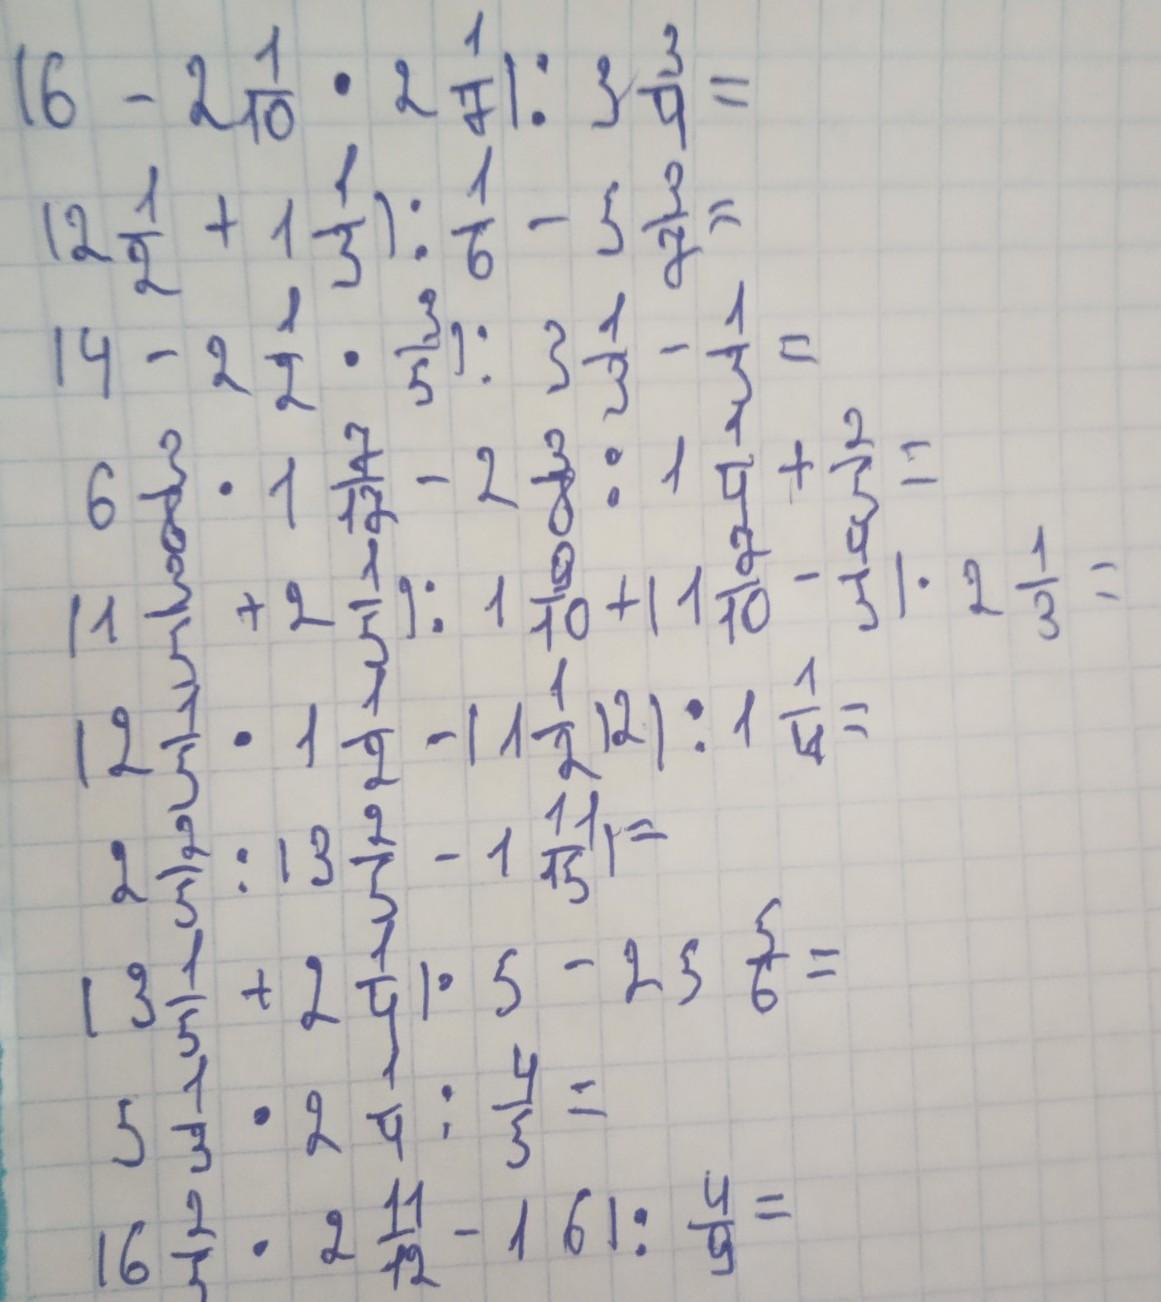 (6 - 2 1/10 · 2 1/7) : 3 3/4 =
(2 1/2 + 1 1/3) : 1/6 - 5 3/7 =
(4 - 2 1/2 · 3/5) : 3 1/3 - 1/3 =
6 3/8 · 1 7/17 - 2 3/8 : 1 1/4 + 2/5 =
(1 + 2 1/5) : 1 /10 + (1 7/10 - 4/5) · 2 1/3 =
(2 1/5 · 1 1/2 - (1 1/2)2) : 1 1/4 =
2 2/5 : (3 2/5 - 1 11/15) =
(3 1/5 + 2 1/4) · 5 - 25 5/6 =
5 1/3 · 2 1/4 : 4/5 =
(6 2/5 · 2 11/12 - 16) : 4/9 =